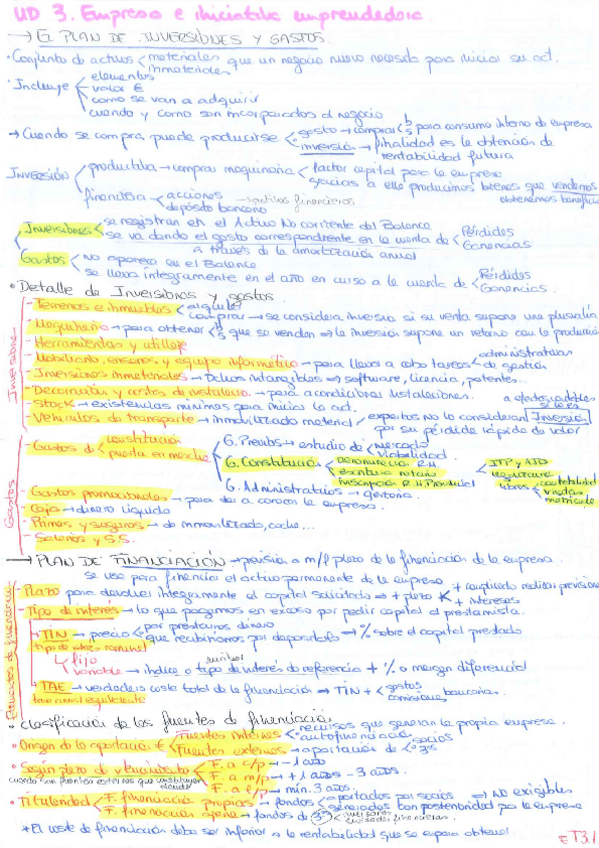 UD 3. Empresa e iniciativa emprendedora.
→ EL PLAN DE INVERSIONES Y GASTOS.
· Conjunto de activos < materiales que un negocio nuevo necesita para iniciar su act.
inmateriales
· Incluye < elementos
valor €
como se van a adquirir
cuando y como son incorporados al negocio
→ Cuando se compra, puede producirse < gasto → comprar b/s para consumo interno de empresa
inversión → finalidad es la obtención de
rentabilidad futura
INVERSIÓN < productiva → comprar maquinaria < factor capital para la empresa
gracias a ella producimos bienes que vendemos
obtenemos beneficio
financiera < acciones
depósito bancario
financieros
Inversiones < se registran en el Activo No corriente del Balance
se va dando el gasto correspondiente en la cuenta de < Pérdidas
Ganancias
a través de la amortización anual
Gastos < No aparece en el Balance
se lleva íntegramente en el año en curso a la cuenta de < Pérdidas
Ganancias.
· Detalle de Inversiones y gastos
Inversiones
- Terrenos e inmuebles < alquiler
comprar → se considera inversión si su venta supone una plusvalía
- Maquinaria → para obtener b/s que se venden ⇒ la inversión supone un retorno con la producción
- Herramientas y utillaje
- Mobiliario, enseres y equipo informático → para llevar a cabo tareas < administrativas
de gestión
- Inversiones inmateriales → bienes intangibles ⇒ software, licencia, patentes...
- Decoración y costes de instalación → para acondicionar instalaciones.
- Stock → existencias mínimas para iniciar la act.
a efectos contables
si lo es
- Vehículos de transporte → inmovilizado material / expertos no lo consideran Inversión
por su pérdida rápida de valor
Gastos
- Gastos de < constitución
puesta en marcha
G. Previos → estudio de < mercado
viabilidad.
G. Constitución < denominación R.M
escritura notario
inscripción R.M Provincial
< ITP y AJD
libros < contabilidad
visitas
matrícula
G. Administrativos → gestoría.
- Gastos promocionales → para dar a conocer la empresa.
- Caja → dinero líquido
- Primas y seguros → de inmovilizado, coche...
- Salarios y S.S.
→ PLAN DE FINANCIACIÓN → previsión a m/l plazo de la financiación de la empresa.
se usa para financiar el activo permanente de la empresa.
Elementos de financiación
- Plazo para devolver íntegramente el capital solicitado ⇒ + plazo < + complicado realizar previsiones
+ intereses
- Tipo de interés → lo que pagamos en exceso por pedir capital al prestamista.
→ TIN → precio < por prestarnos dinero
que recibiríamos por depositarlo → % sobre el capital prestado
tipo de interés nominal
fijo
variable → índice o tipo de interés de referencia + % o margen diferencial
euribor
TAE → verdadero coste total de la financiación ⇒ TIN + < gastos
comisiones bancarias.
tasa anual equivalente
· Clasificación de las fuentes de financiación
· Origen de la aportación € < Fuentes internas < recursos que generan la propia empresa.
autofinanciación
Fuentes externas → aportación de < socios
3ºs
· Según plazo de vencimiento < F. a c/p → - 1 año
F. a m/p → + 1 año - 3 años.
F. a l/p → mín. 3 años.
· Titularidad < F. financiación propias → fondos < aportados por socios ⇒ NO exigibles
generados con posterioridad por la empresa
F. financiación ajena → fondos de 3ºs <
entidades financieras
* El coste de financiación debe ser inferior a la rentabilidad que se espera obtener.
ET3.1